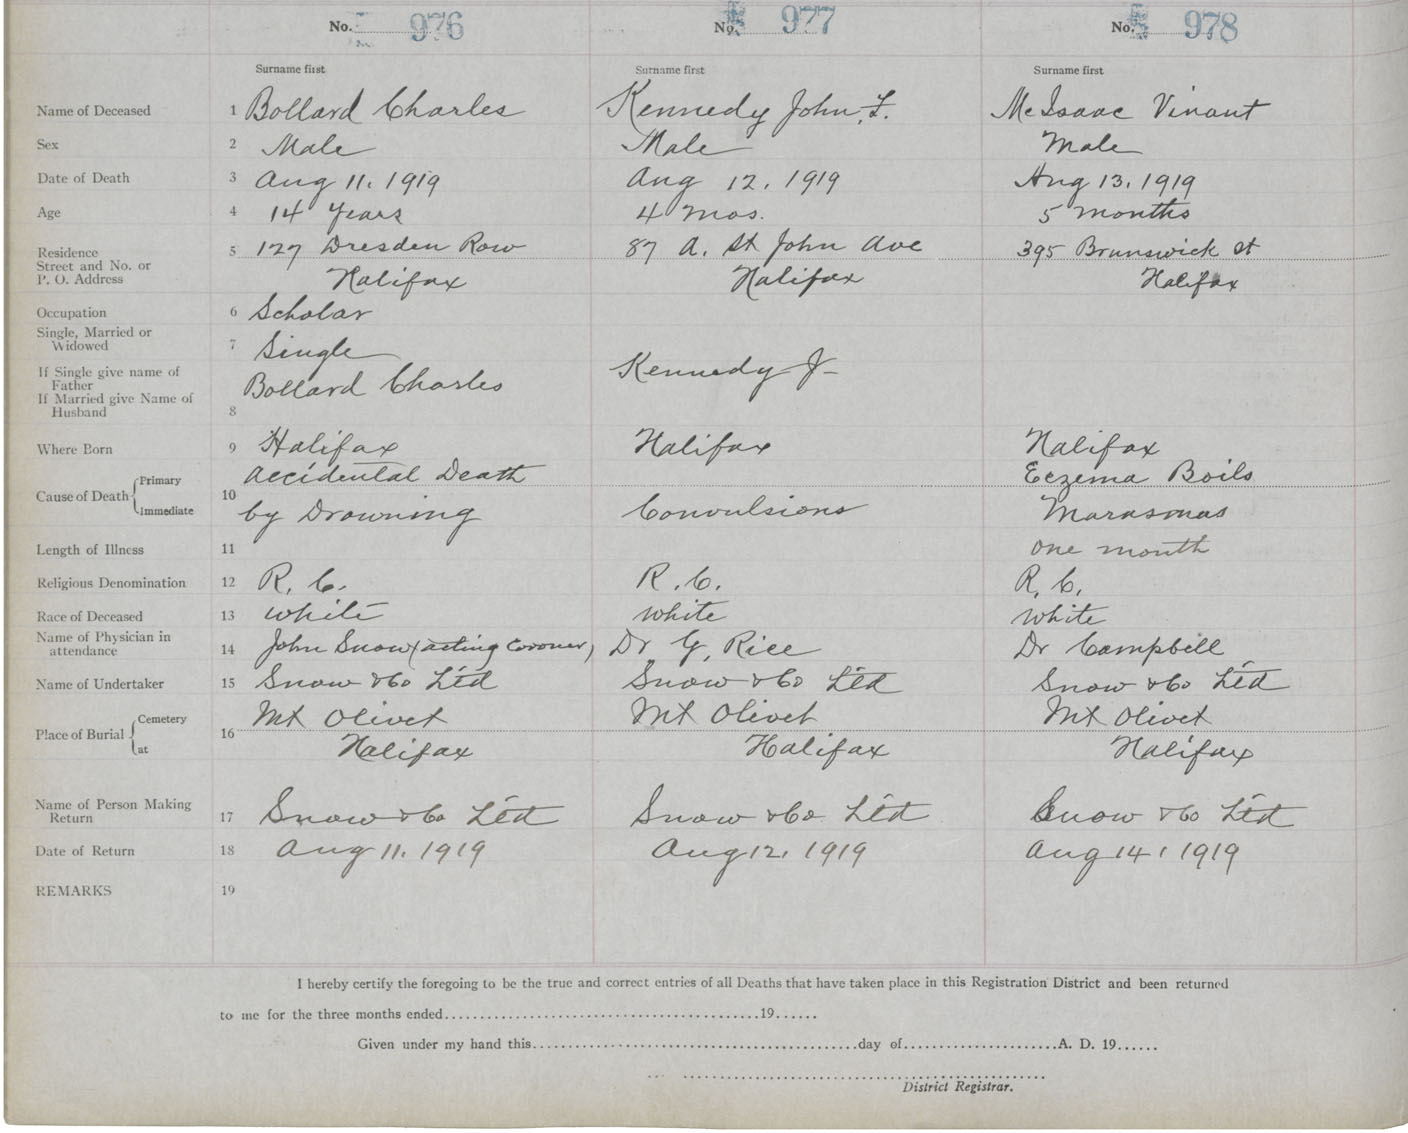 No. 976 No. 977 No. 978
Surname first Surname first Surname first
Name of Deceased 1 Bollard Charles Kennedy John, F. McIsaac Vinant
Sex 2 Male Male Male
Date of Death 3 Aug 11. 1919 Aug 12, 1919 Aug 13. 1919
Age 4 14 Years 4 mos. 5 months
Residence 5 127 Dresden Row 87 A. St John Ave 395 Brunswick St
Street and No. or
P. O. Address Halifax Halifax Halifax
Occupation 6 Scholar
Single, Married or
Widowed 7 Single
If Single give name of
Father Bollard Charles Kennedy J
If Married give Name of
Husband 8
Where Born 9 Halifax Halifax Halifax
Primary accidental Death Eczema Boils
Cause of Death 10
Immediate by Drowning Convulsions Marasmas
Length of Illness 11 one month
Religious Denomination 12 R. C. R. C. R. C.
Race of Deceased 13 white white white
Name of Physician in
attendance 14 John Snow (acting Coroner) Dr G, Rice Dr Campbell
Name of Undertaker 15 Snow & Co Ltd Snow & Co Ltd Snow & Co Ltd
Cemetery Mt Olivet Mt Olivet Mt Olivet
Place of Burial 16
at Halifax Halifax Halifax
Name of Person Making
Return 17 Snow & Co Ltd Snow & Co Ltd Snow & Co Ltd
Date of Return 18 Aug 11. 1919 Aug 12, 1919 Aug 14, 1919
REMARKS 19
I hereby certify the foregoing to be the true and correct entries of all Deaths that have taken place in this Registration District and been returned
to me for the three months ended..........................................19......
Given under my hand this...........................................day of.....................A. D. 19......
District Registrar.